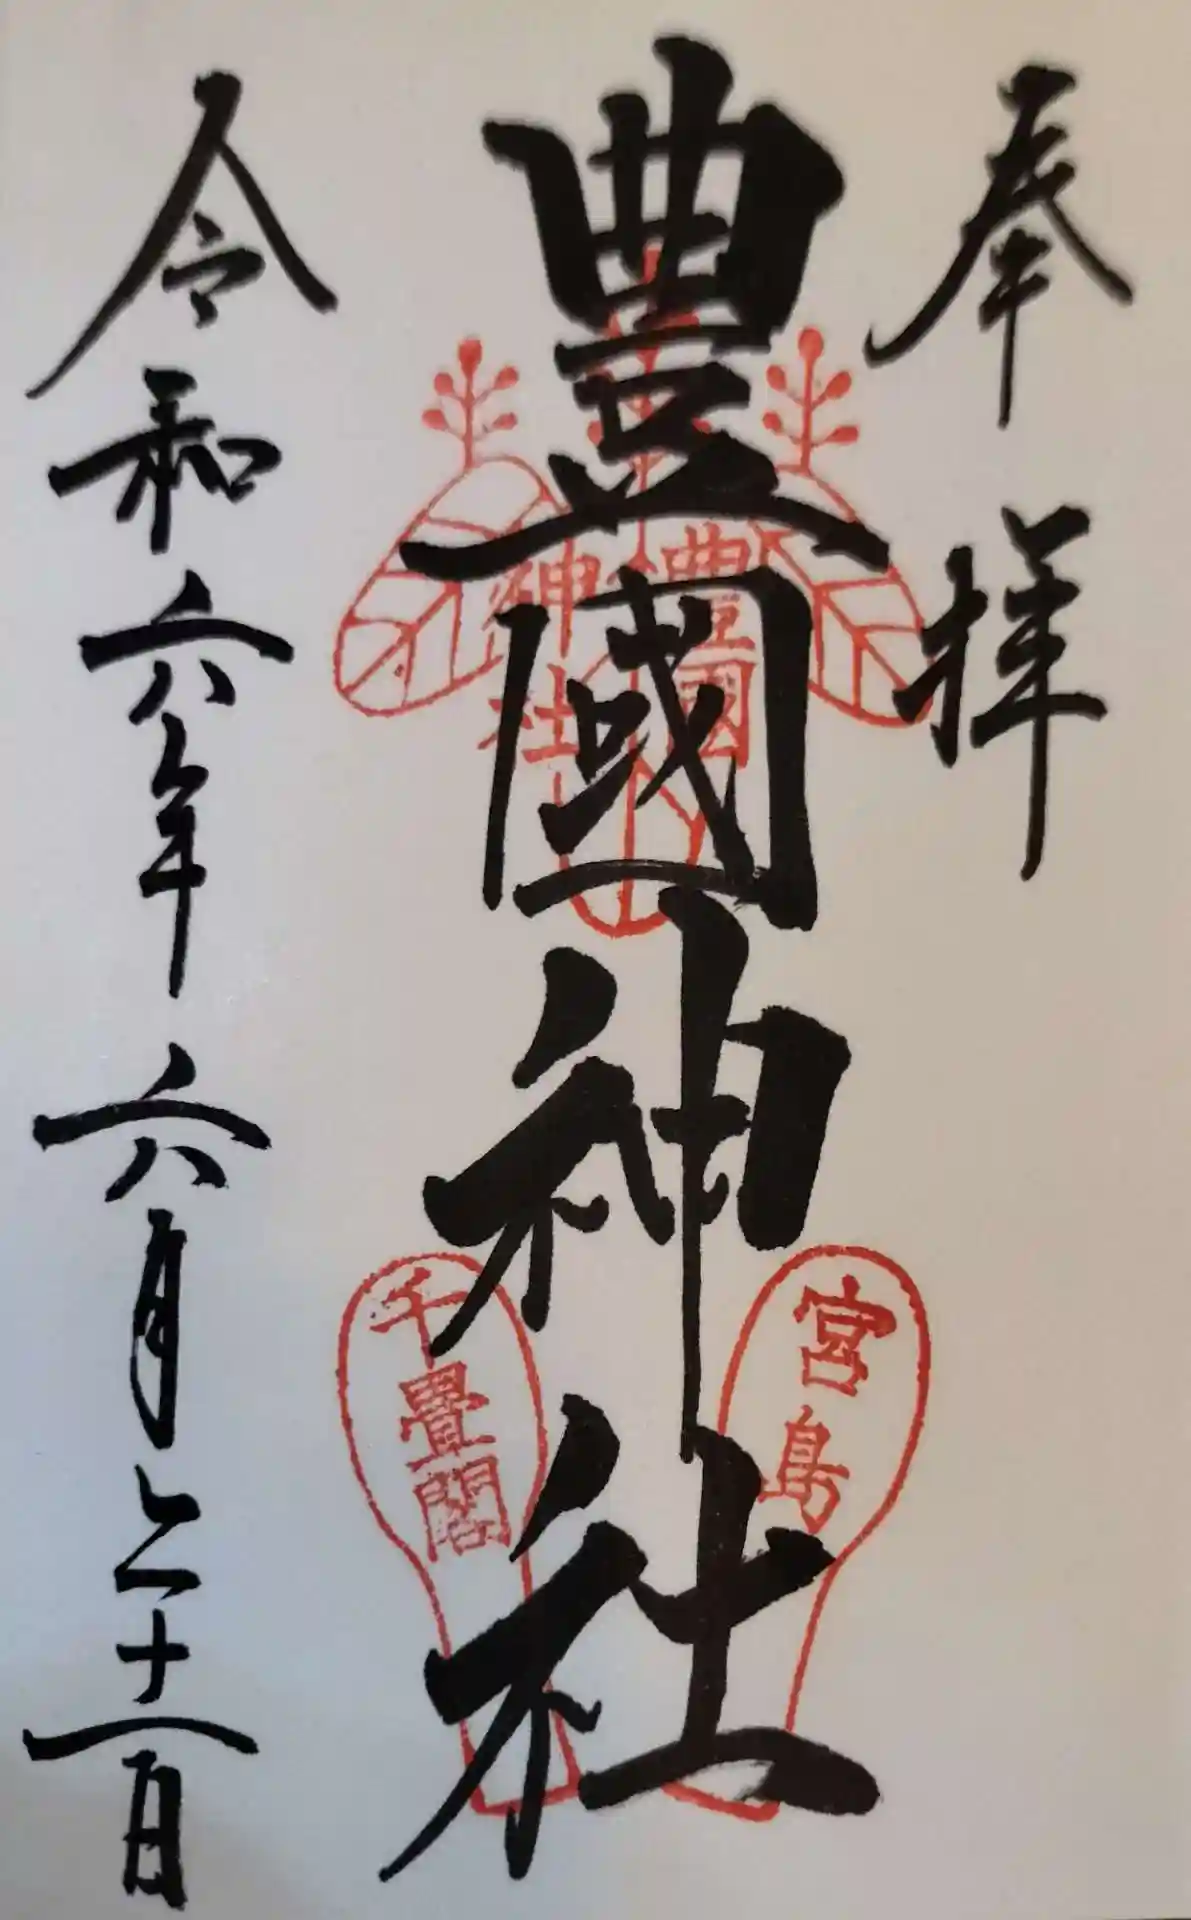 奉拝
豊國神社
豊國
神社
宮島
千畳閣
令和六年六月二十一日